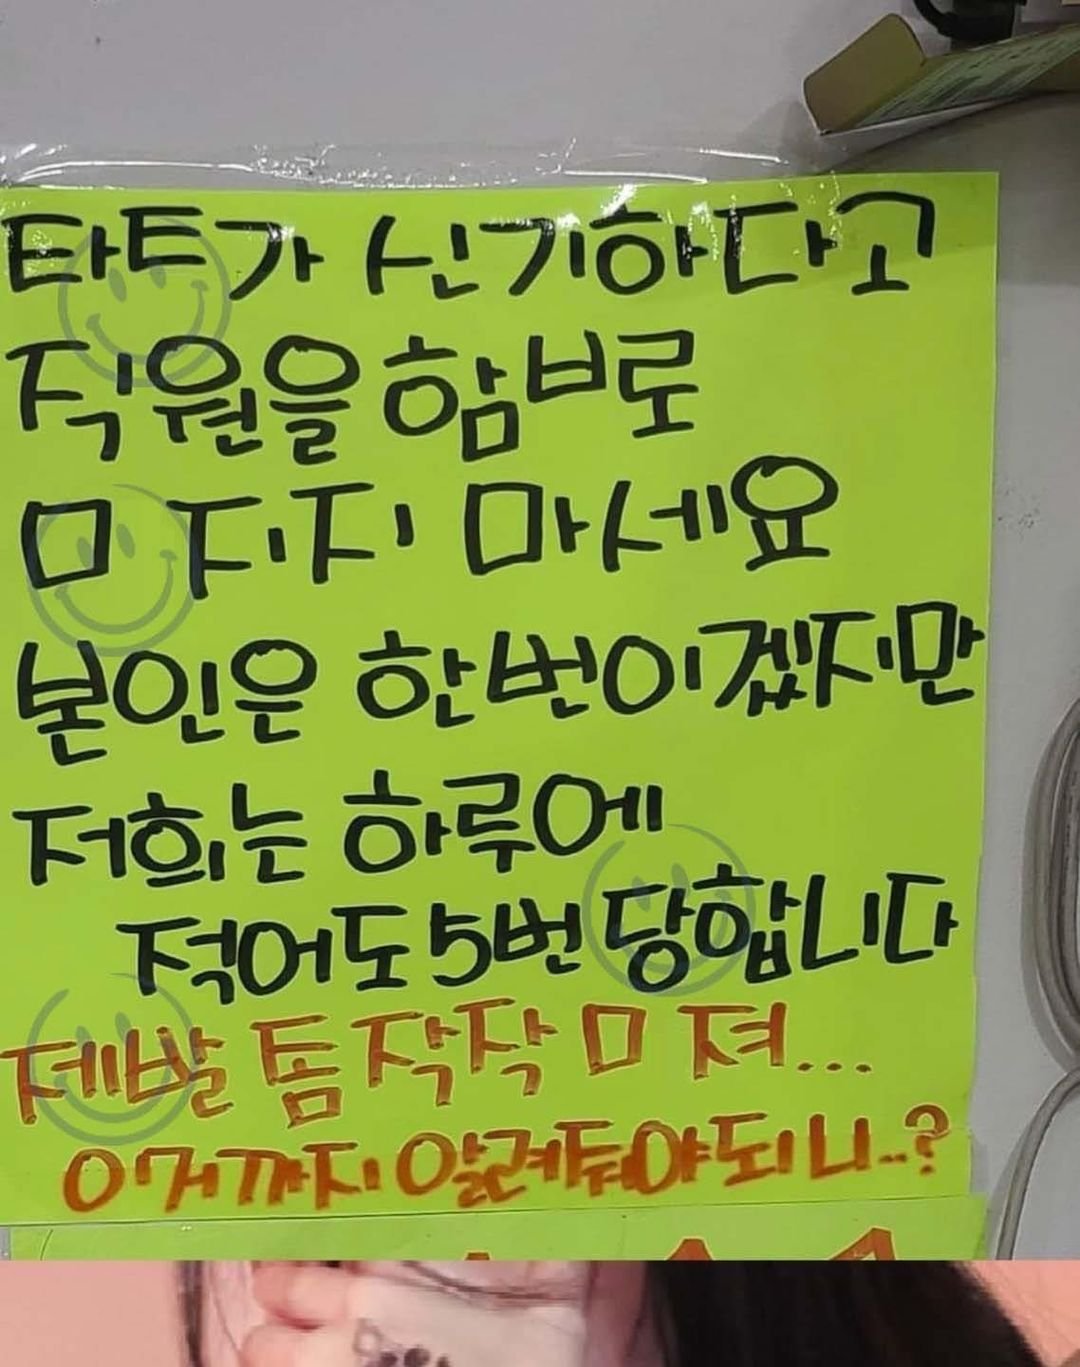 타투가 신기하다고
직원을 함부로
ㅁ 지지 마세요
본인은 한번이겠지만
저희는 하루에
적어도 5번 당합니다
제발 좀 작작 ㅁ 져...
이거까지 알려둬야되니..?